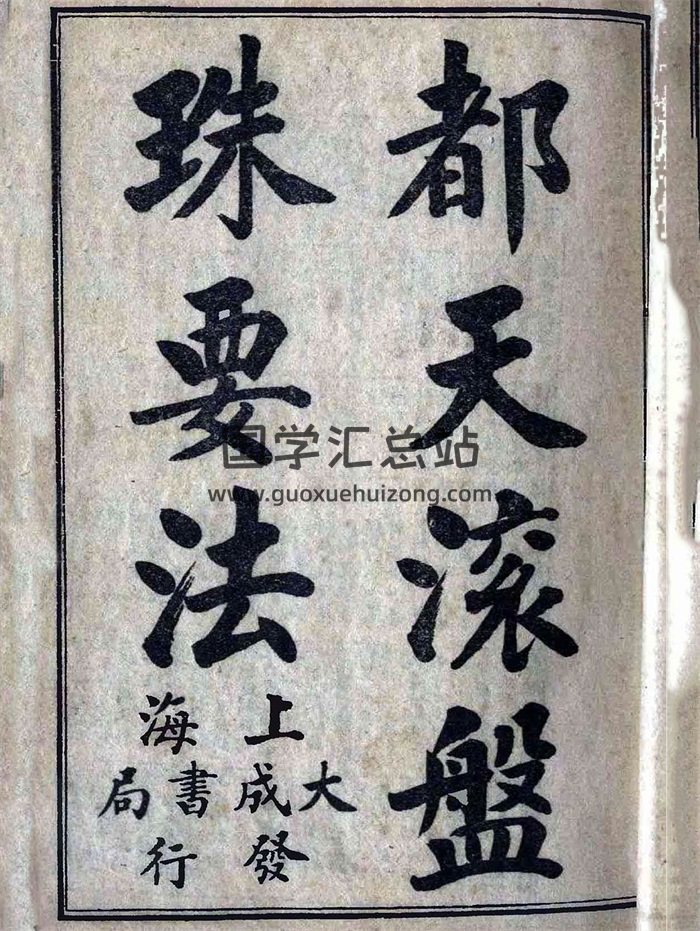 都天滚盤
珠要法
上海
大成書局
發行
国学汇总站
www.guoxuehuizong.com